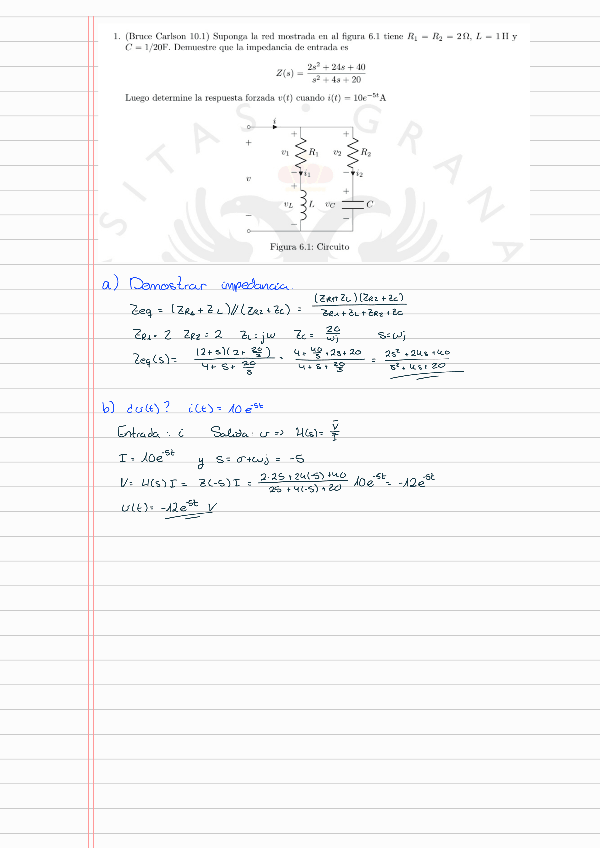 1. (Bruce Carlson 10.1) Suponga la red mostrada en al figura 6.1 tiene R₁ = R₂ = 2Ω, L = 1H y
C = 1/20F. Demuestre que la impedancia de entrada es
Z(s) = (2s² + 24s + 40)/(s² + 4s + 20)
Luego determine la respuesta forzada v(t) cuando i(t) = 10e⁻⁵ᵗA
SITAS • GRANA
i
+ + +
v₁ R₁ v₂ R₂
− i₁ − i₂
v + +
v_L L v_C C
− − −
Figura 6.1: Circuito
a) Demostrar impedancia.
Zeq = (ZR1 + ZL)//(ZR2 + ZC) = (ZR1+ZL)(ZR2+ZC)/(ZR1+ZL+ZR2+ZC)
ZR1 = 2 ZR2 = 2 ZL = jω ZC = 20/ωj s=ωj
Zeq(s) = (2+s)(2+20/s)/(4+s+20/s) = (4+40/s+2s+20)/(4+s+20/s) = (2s²+24s+40)/(s²+4s+20)
b) ¿v(t)? i(t) = 10e⁻⁵ᵗ
Entrada: i Salida: v => H(s) = V/I
I = 10e⁻⁵ᵗ y s = σ+ωj = -5
V = H(s) I = Z(-5) I = (2·25+24(-5)+40)/(25+4(-5)+20) 10e⁻⁵ᵗ = -12e⁻⁵ᵗ
v(t) = -12e⁻⁵ᵗ V